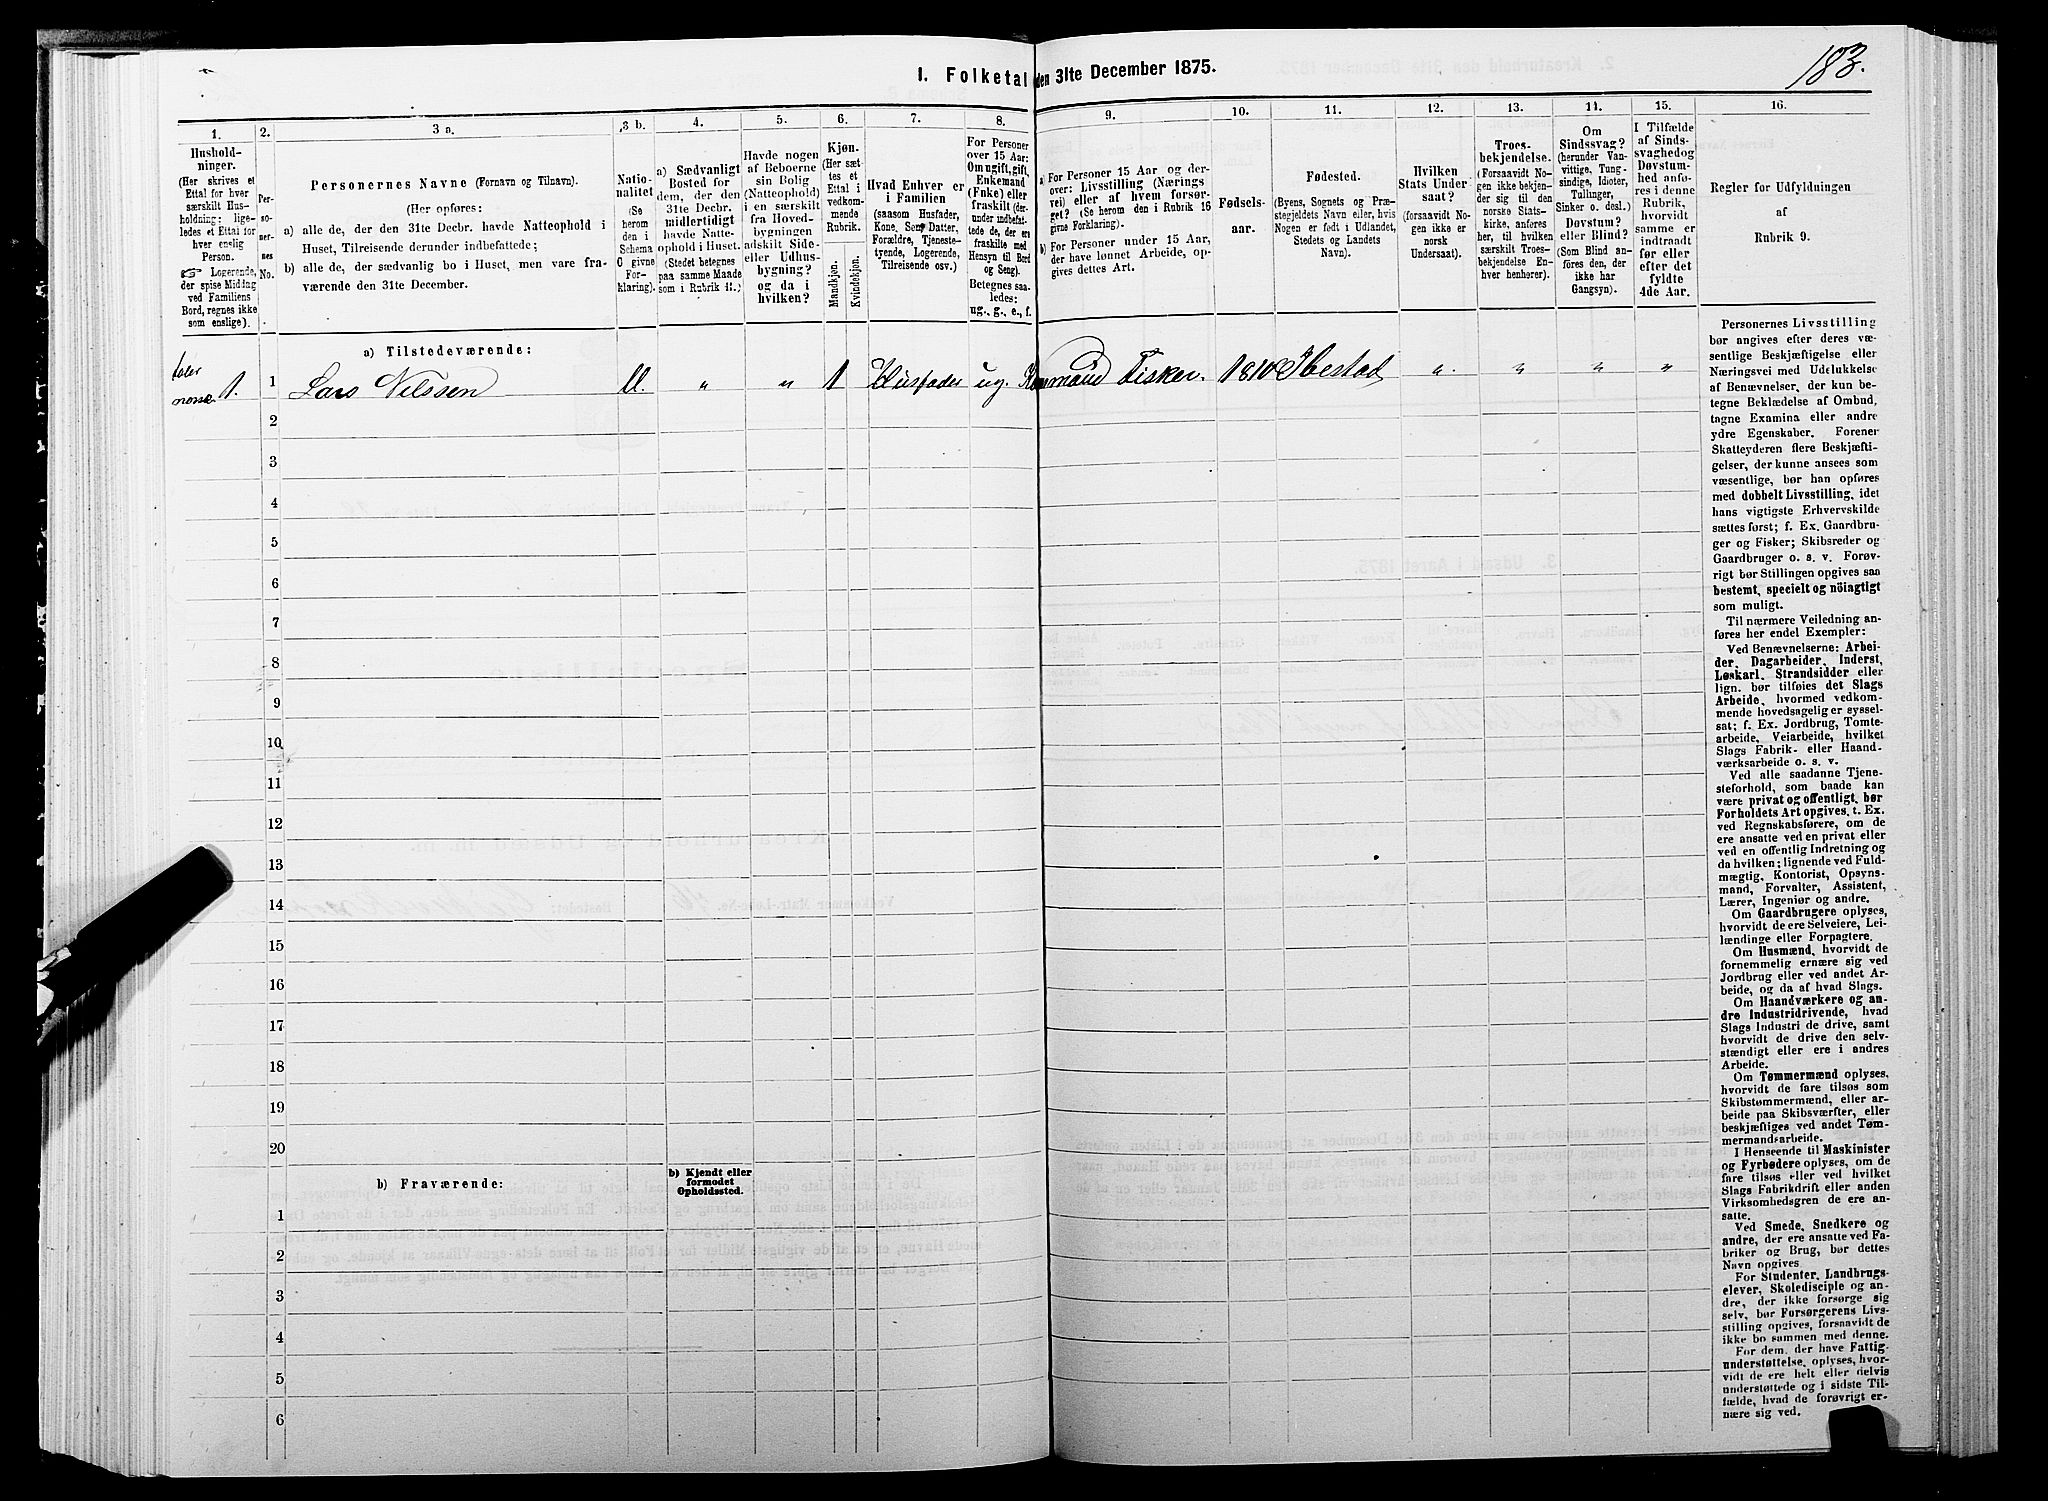 183.
I. Folketal den 31te December 1875.
1. 2. 3 a. 3 b. 4. 5. 6. 7. 8. 9. 10. 11. 12. 13. 14. 15. 16.
Hushold-
ninger.
(Her skrives et
Ettal for hver
særskilt Hus-
holdning: lige-
ledes et Ettal for
hver enslig
Person.
☞ Logerende,
der spise Middag
ved Familiens
Bord, regnes ikke
som enslige).
Per-
so-
ner-
nes
No.
Personernes Navne (Fornavn og Tilnavn).
(Her opføres:
a) alle de, der den 31te Decbr. havde Natteophold i
Huset, Tilreisende derunder indbefattede;
b) alle de, der sædvanlig bo i Huset, men vare fra-
værende den 31te December.
Natio-
nalitet
(Se
herom
den i
Schema
C givne
For-
klaring).
a) Sædvanligt
Bosted for
dem, der den
31te Decbr.
midlertidigt
havde Natte-
ophold i Huset.
(Stedet betegnes
paa samme Maade
som i Rubrik 11.)
Havde nogen
af Beboerne
sin Bolig
(Natteophold)
i en særskilt
fra Hoved-
bygningen
adskilt Side-
eller Udhus-
bygning?
og da i
hvilken?
Kjøn.
(Her sæt-
tes et
Ettal i
vedkom-
mende
Rubrik.
Mandkjøn.
Kvindekjøn.
Hvad Enhver er
i Familien
(saasom Husfader,
Kone, Søn, Datter,
Forældre, Tjeneste-
tyende, Logerende,
Tilreisende osv.)
For Personer
over 15 Aar:
Om ugift, gift,
Enkemand
(Enke) eller
fraskilt (der-
under indbefat-
tede de, der ere
fraskilte med
Hensyn til Bord
og Seng).
Betegnes saa-
ledes:
ug., g., e., f.
a) For Personer 15 Aar og der-
over: Livsstilling (Nærings
vei) eller af hvem forsør-
get? (Se herom den i Rubrik 16
givne Forklaring).
b) For Personer under 15 Aar,
der have lønnet Arbeide, op-
gives dettes Art.
Fødsels-
aar.
Fødested.
(Byens, Sognets og Præ-
stegjeldets Navn eller, hvis
Nogen er født i Udlandet,
Stedets og Landets
Navn).
Hvilken
Stats Under-
saat?
(forsaavidt No-
gen ikke er
norsk
Undersaat).
Troes-
bekjendelse.
(Forsaavidt No-
gen ikke bekjen-
der sig til den
norske Stats-
kirke, anføres
her, til hvilken
særskilt Troes-
bekjendelse En-
hver henhører).
Om
Sindssvag?
(herunder Van-
vittige, Tung-
sindige, Idioter,
Tullinger,
Sinker o. desl.)
Døvstum?
eller Blind?
(Som Blind an-
føres den, der
ikke har
Gangsyn).
I Tilfælde
af Sinds-
svaghed og
Døvstum-
hed anfø-
res i denne
Rubrik,
hvorvidt
samme er
indtraadt
før eller
efter det
fyldte
4de Aar.
Regler for Udfyldningen
af
Rubrik 9.
a) Tilstedeværende:
1. 1 Lars Nilssen " " 1 Husfader ug. Fisker. 1810 Ibestad " " " "
2
3
4
5
6
7
8
9
10
11
12
13
14
15
16
17
18
19
20
b) Fraværende:
b) Kjendt eller
formodet
Opholdssted.
1
2
3
4
5
6
Personernes Livsstilling
bør angives efter deres væ-
sentlige Beskjæftigelse eller
Næringsvei med Udelukkelse
af Benævnelser, der kun be-
tegne Beklædelse af Ombud,
tagne Examina eller andre
ydre Egenskaber. Forener
Skatteyderen flere Beskjæfti-
gelser, der kunne ansees som
væsentlige, bør han opføres
med dobbelt Livsstilling, idet
hans vigtigste Erhvervskilde
sættes først; f. Ex. Gaardbru-
ger og Fisker; Skibsreder og
Gaardbruger o. s. v. Forøv-
rigt bør Stillingen opgives saa
bestemt, specielt og nöiagtigt
som muligt.
Til nærmere Veiledning an-
føres her endel Exempler:
Ved Benævnelserne: Arbei-
der, Dagarbeider, Inderst,
Løskarl, Strandsidder eller
lign. bør tilføies det Slags
Arbeide, hvormed vedkom-
mende hovedsagelig er syssel-
sat; f. Ex. Jordbrug, Tomte-
arbeide, Veiarbeide, hvilket
Slags Fabrik- eller Haand-
værksarbeide o. s. v.
Ved alle saadanne Tjene-
steforhold, som baade kan
være privat og offentligt, bør
Forholdets Art opgives, t. Ex.
ved Regnskabsførere, om de
ere ansatte ved en privat eller
ved en offentlig Indretning og
da hvilken; lignende ved Fuld-
mægtig, Kontorist, Opsyns-
mand, Forvalter, Assistent,
Lærer, Ingeniør og andre.
Om Gaardbrugere oplyses,
hvorvidt de ere Selveiere, Lei-
lændinge eller Forpagtere.
Om Husmænd, hvorvidt de
fornemmelig ernære sig ved
Jordbrug eller ved andet Ar-
beide, og da af hvad Slags.
Om Haandværkere og an-
dre Industridrivende, hvad
Slags Industri de drive, samt
hvorvidt de drive den selv-
stændigt eller ere i andres
Arbeide.
Om Tømmermænd oplyses,
hvorvidt de fare tilsøs som
Skibstømmermænd, eller ar-
beide paa Skibsværfter, eller
beskjæftiges ved andet Tøm-
mermandsarbeide.
I Henseende til Maskinister
og Fyrbødere oplyses, om de
fare tilsøs eller ved hvilket
Slags Fabrikdrift eller anden
Virksomhedsgren de ere an-
satte.
Ved Smede, Snedkere og
andre, der ere ansatte ved Fa-
briker og Brug, bør dettes
Navn opgives.
For Studenter, Landbrugs-
elever, Skoledisciple og an-
dre, der ikke forsørge sig
selv, bør Forsørgerens Livs-
stilling opgives, forsaavidt de
ikke bo sammen med denne.
For dem, der have Fattig-
understøttelse, oplyses, hvor-
vidt de ere helt eller delvis
understøttede og i sidste Til-
fælde, hvad de forøvrigt er-
nære sig ved.